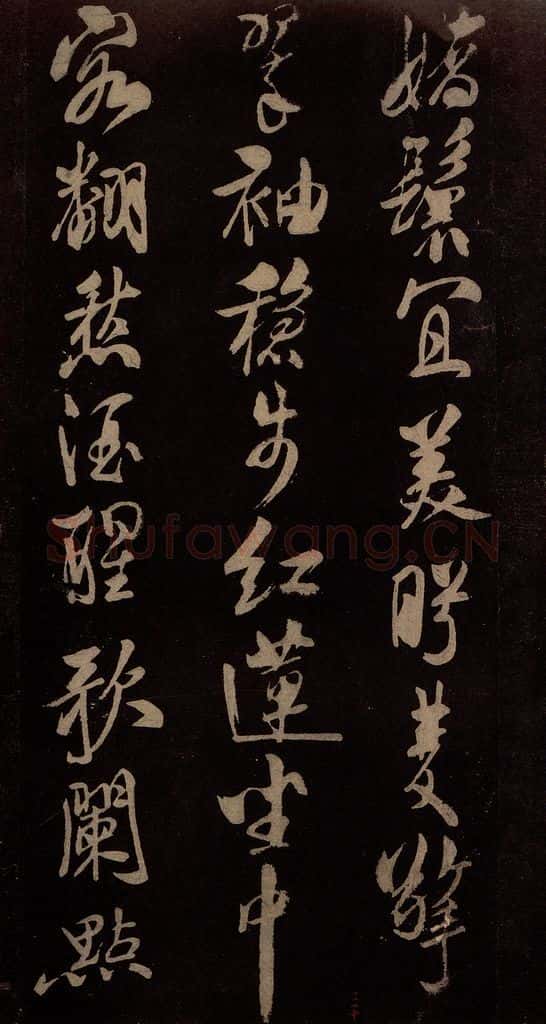 嬌鬟宜美盻雙擎
翠袖穩步紅蓮坐中
客翻愁酒醒歌闌點
Shufawang.CN